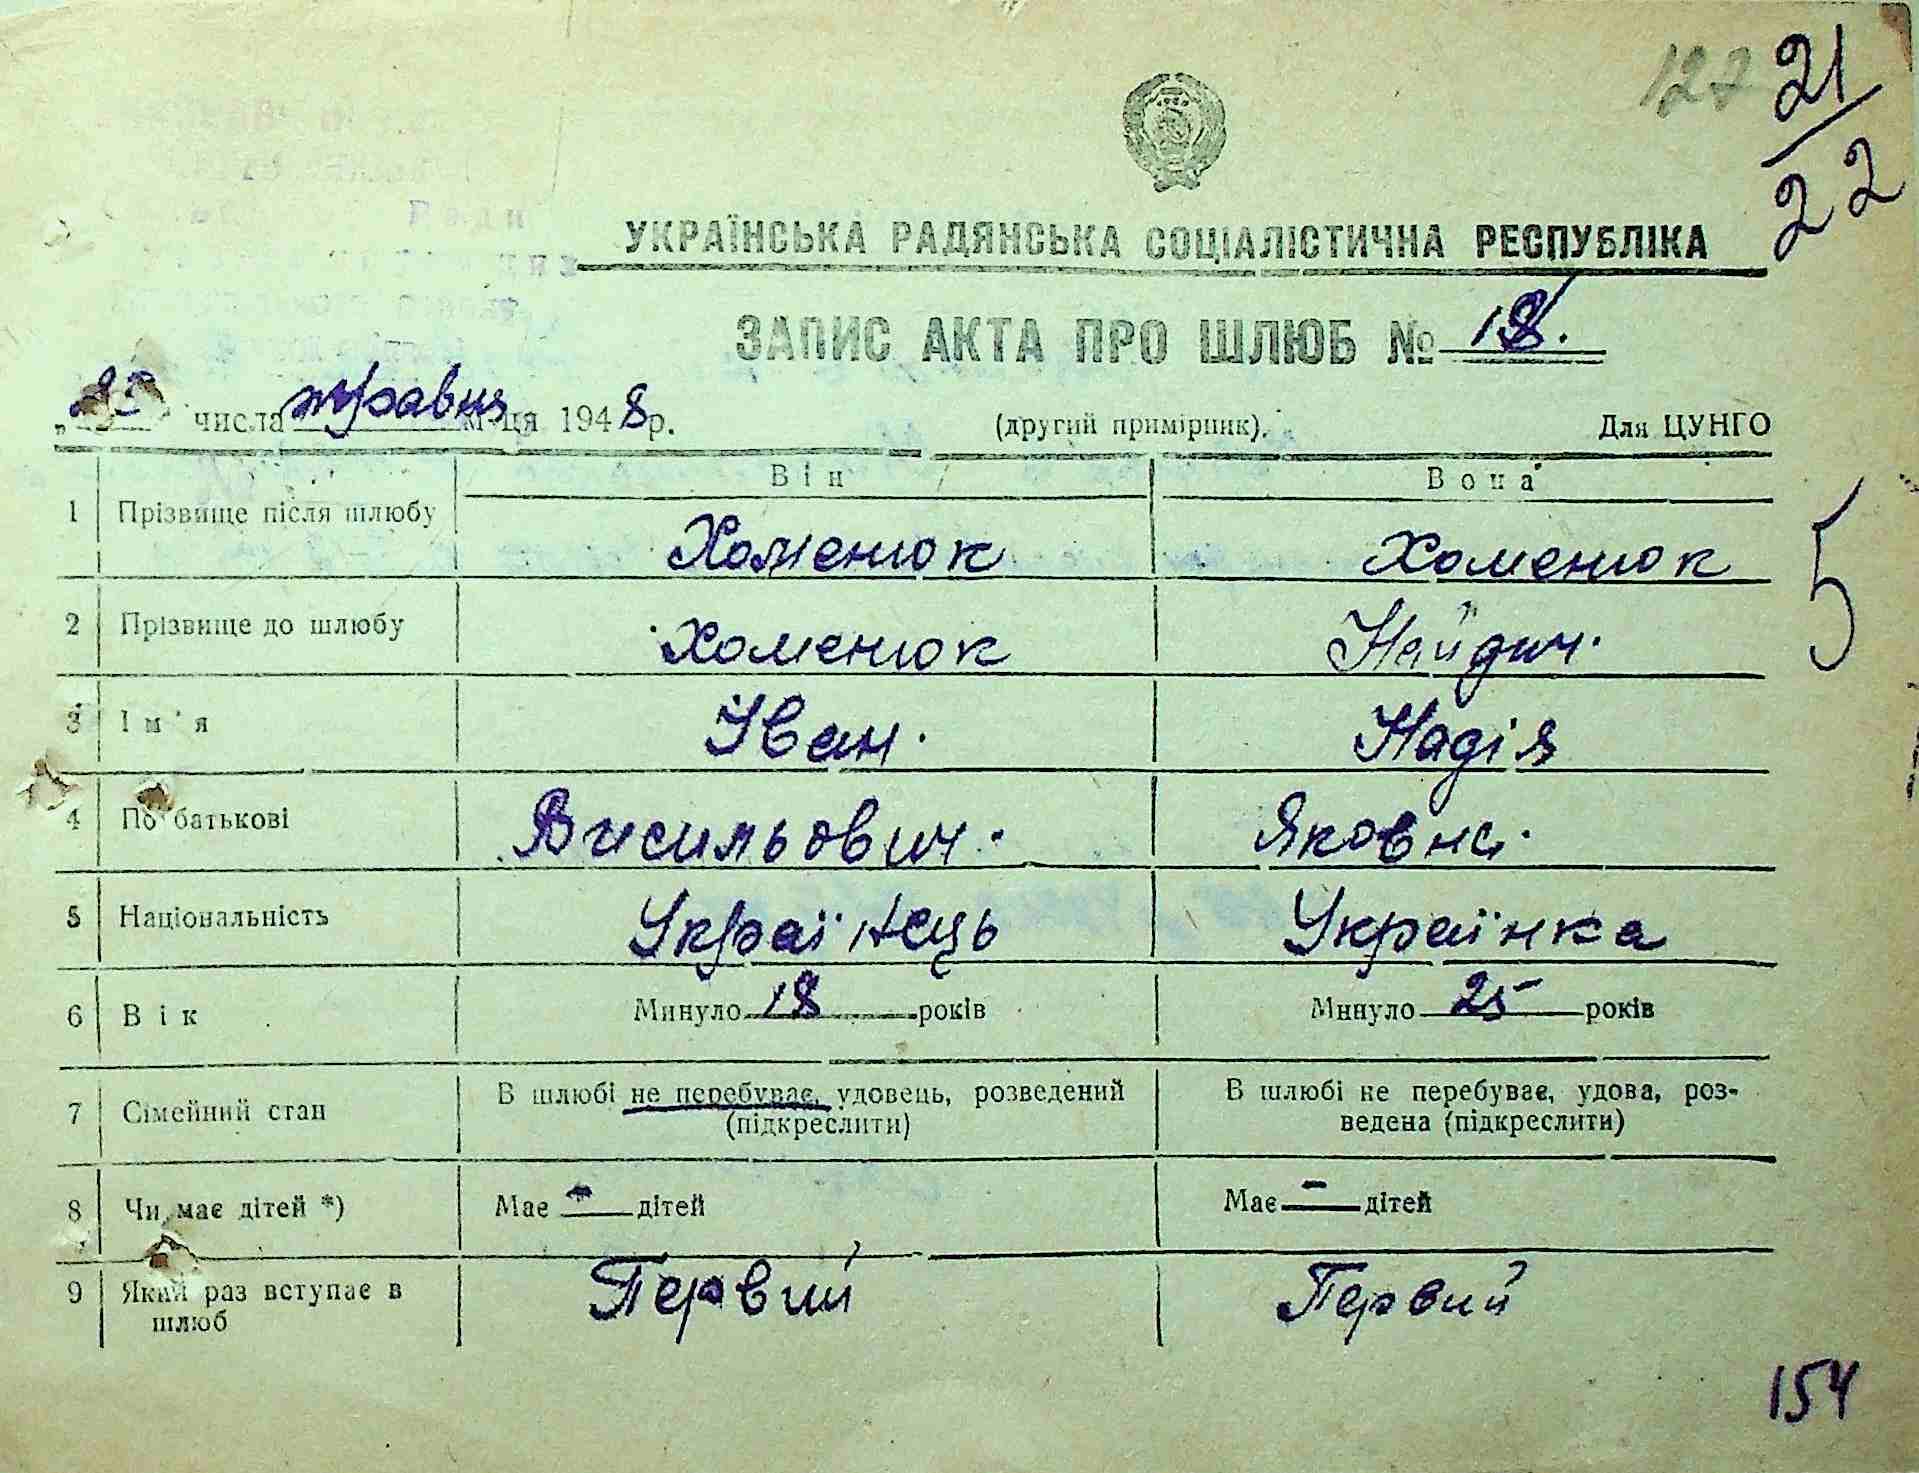 127
21/22
УКРАЇНСЬКА РАДЯНСЬКА СОЦІАЛІСТИЧНА РЕСПУБЛІКА
ЗАПИС АКТА ПРО ШЛЮБ № 18.
числа травня м-ця 1948 р. (другий примірник). Для ЦУНГО
Він Вона
1 Прізвище після шлюбу Хоменюк Хоменюк
5
2 Прізвище до шлюбу Хоменюк Найдич.
3 Ім'я Іван. Надія
4 По батькові Васильович. Яковна.
5 Національність Українець Українка
6 Вік Минуло 18 років Минуло 25 років
7 Сімейний стан В шлюбі не перебуває, удовець, розведений (підкреслити) В шлюбі не перебуває, удова, роз-
ведена (підкреслити)
8 Чи має дітей *) Має - дітей Має - дітей
9 Який раз вступає в шлюб Первий Первий
154